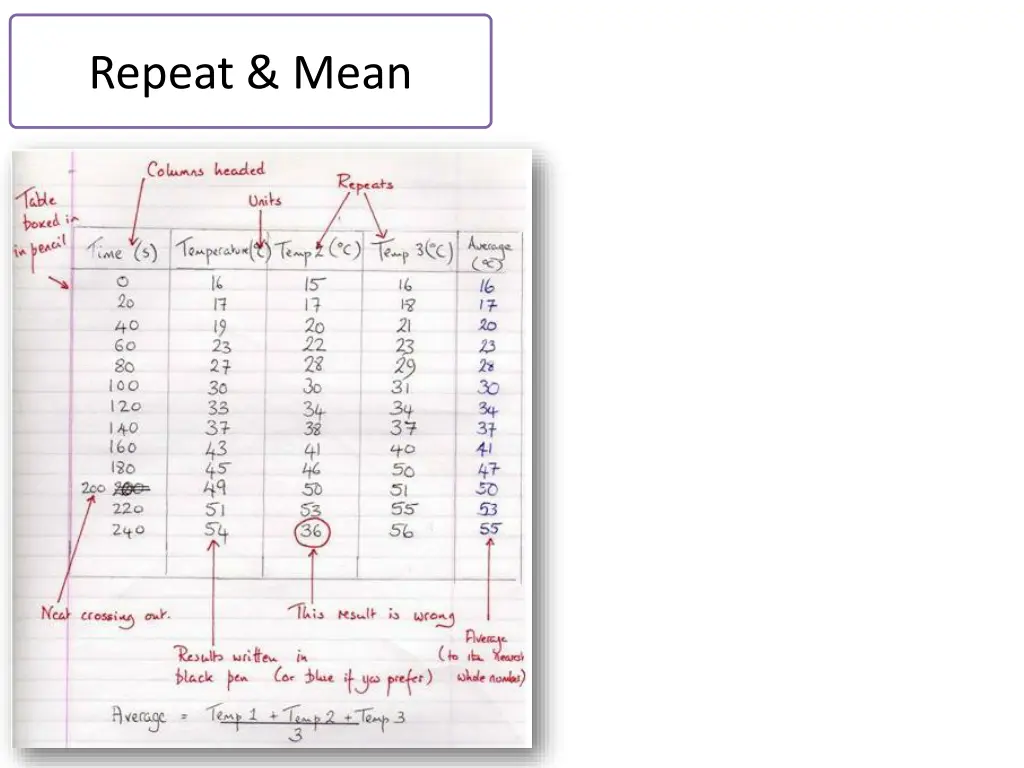 Repeat & Mean
Columns headed
Repeats
Units
Table
boxed in
in pencil
Time (s) Temperature(°C) Temp 2 (°C) Temp 3(°C) Average (°C)
0 16 15 16 16
20 17 17 18 17
40 19 20 21 20
60 23 22 23 23
80 27 28 29 28
100 30 30 31 30
120 33 34 34 34
140 37 38 37 37
160 43 41 40 41
180 45 46 50 47
200 49 50 51 50
220 51 53 55 53
240 54 36 56 55
Neat crossing out.
This result is wrong
Average
(to the nearest
whole number)
Results written in
black pen (or blue if you prefer)
Average = Temp 1 + Temp 2 + Temp 3
3